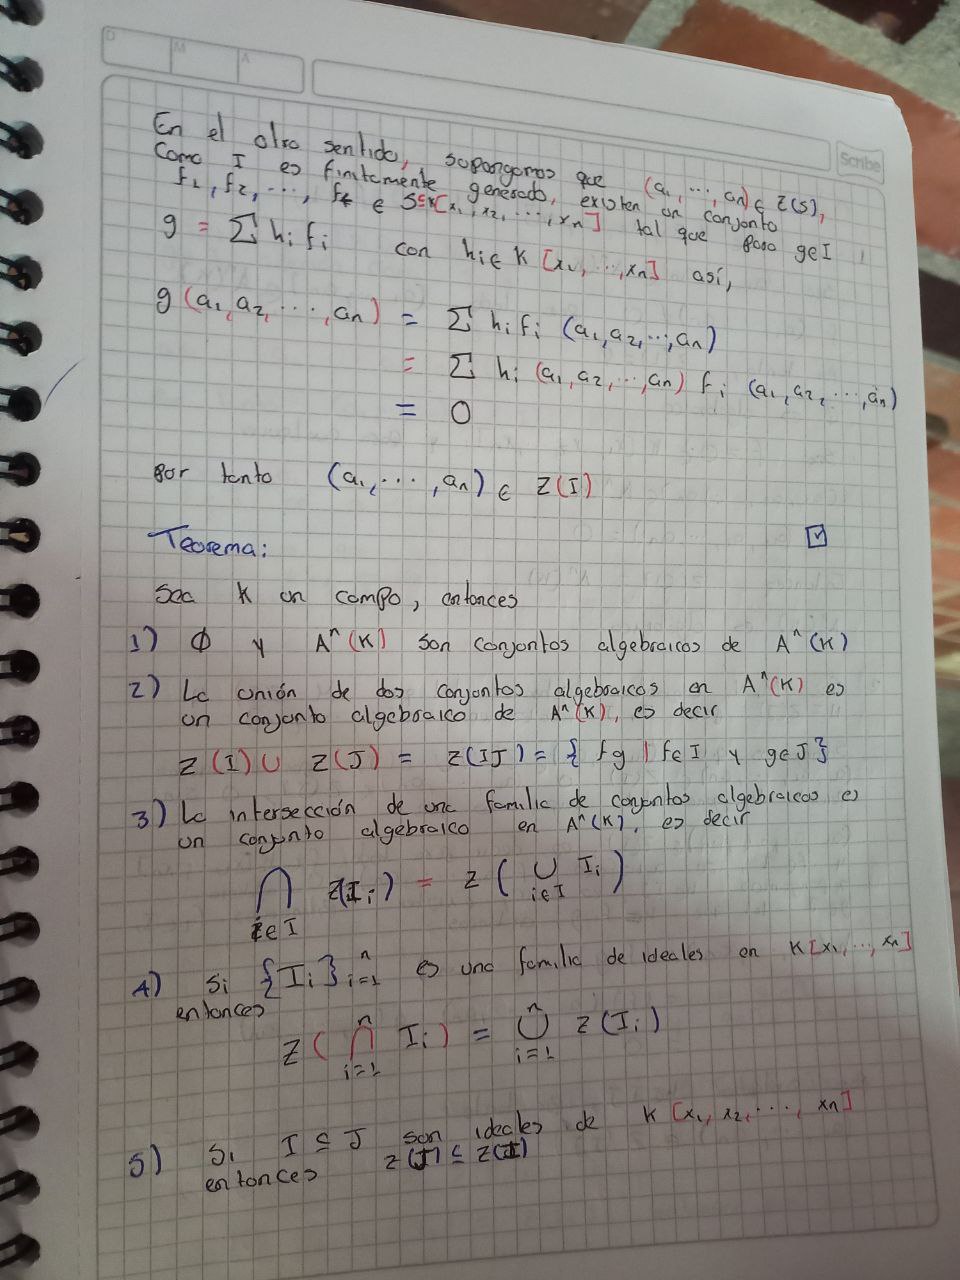 D M A
Scribe
En el otro sentido, supongamos que (a₁, ⋯, aₙ) ∈ Z(S),
Como I es finitamente generado, existen un conjunto
f₁, f₂, ⋯, fₜ ∈ S⊆K[x₁, x₂, ⋯, xₙ] tal que para g∈I
g = Σ hᵢ fᵢ con hᵢ∈ K [x₁, ⋯, xₙ] así,
g (a₁, a₂, ⋯, aₙ) = Σ hᵢ fᵢ (a₁, a₂, ⋯, aₙ)
= Σ hᵢ (a₁, a₂, ⋯, aₙ) fᵢ (a₁, a₂, ⋯, aₙ)
= 0
por tanto (a₁, ⋯, aₙ) ∈ Z(I)
Teorema:
Sea K un campo, entonces
1) ∅ y Aⁿ(K) son conjuntos algebraicos de Aⁿ(K)
2) La unión de dos conjuntos algebraicos en Aⁿ(K) es
un conjunto algebraico de Aⁿ(K), es decir
Z (I) ∪ Z(J) = Z(IJ) = { fg | f∈I y g∈J}
3) La intersección de una familia de conjuntos algebraicos es
un conjunto algebraico en Aⁿ(K), es decir
⋂ Z(Iᵢ) = Z ( ∪ Iᵢ )
i∈I i∈I
4) Si {Iᵢ}ⁿᵢ₌₁ es una familia de ideales en K[x₁, ⋯, xₙ]
entonces
Z ( ⋂ⁿᵢ₌₁ Iᵢ ) = ⋃ⁿᵢ₌₁ Z (Iᵢ)
5) Si I ⊆ J son ideales de K [x₁, x₂, ⋯, xₙ]
entonces Z(J) ⊆ Z(I)